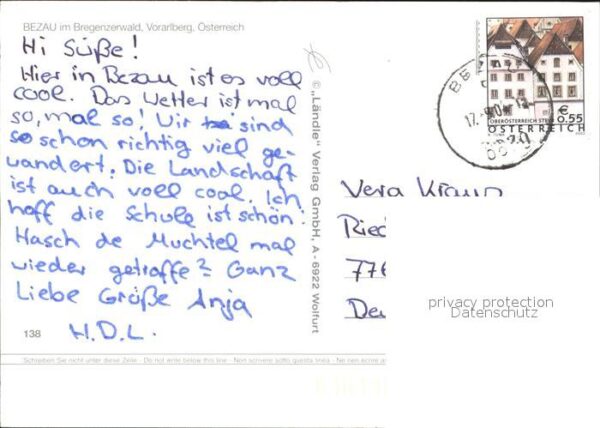 BEZAU im Bregenzerwald, Vorarlberg, Österreich
Hi Süße!
Hier in Bezau ist es voll
cool. Das Wetter ist mal
so, mal so! Wir sind
so schon richtig viel ge-
wandert. Die Landschaft
ist auch voll cool. Ich
hoff die Schule ist schön!
Hasch de Muchtel mal
wieder getroffe? Ganz
Liebe Grüße Anja
H.D.L.
138
Schreiben Sie nicht unter diese Zeile - Do not write below this line - Non scrivere sotto questa linea - Ne rien écrire
© „Ländle" Verlag GmbH, A - 6922 Wolfurt
€ 0.55
OBERÖSTERREICH
ÖSTERREICH
Vera
Ried
776
De
privacy protection
Datenschutz